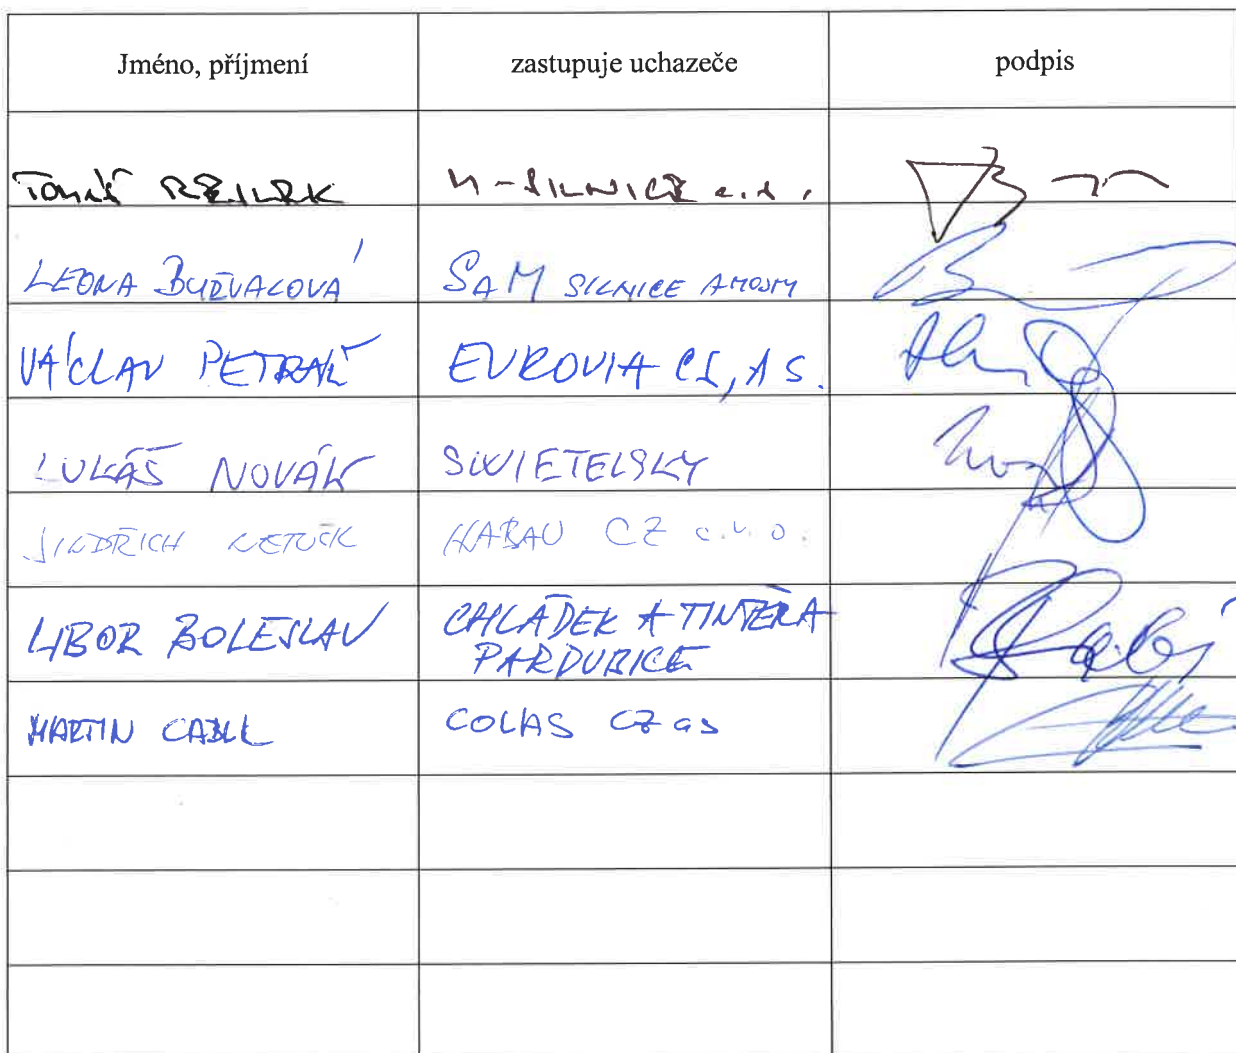 Jméno, příjmení zastupuje uchazeče podpis
TOMÁŠ M-SILNICE a.s.
LEONA SAM SILNICE A MOSTY
VÁCLAV PETRÁK EUROVIA CS, A S.
LUKÁŠ NOVÁK SWIETELSKY
JINDŘICH HABAU CZ s.r.o.
LIBOR BOLESLAV CHLÁDEK A TINTĚRA
PARDUBICE
MARTIN COLAS CZ as